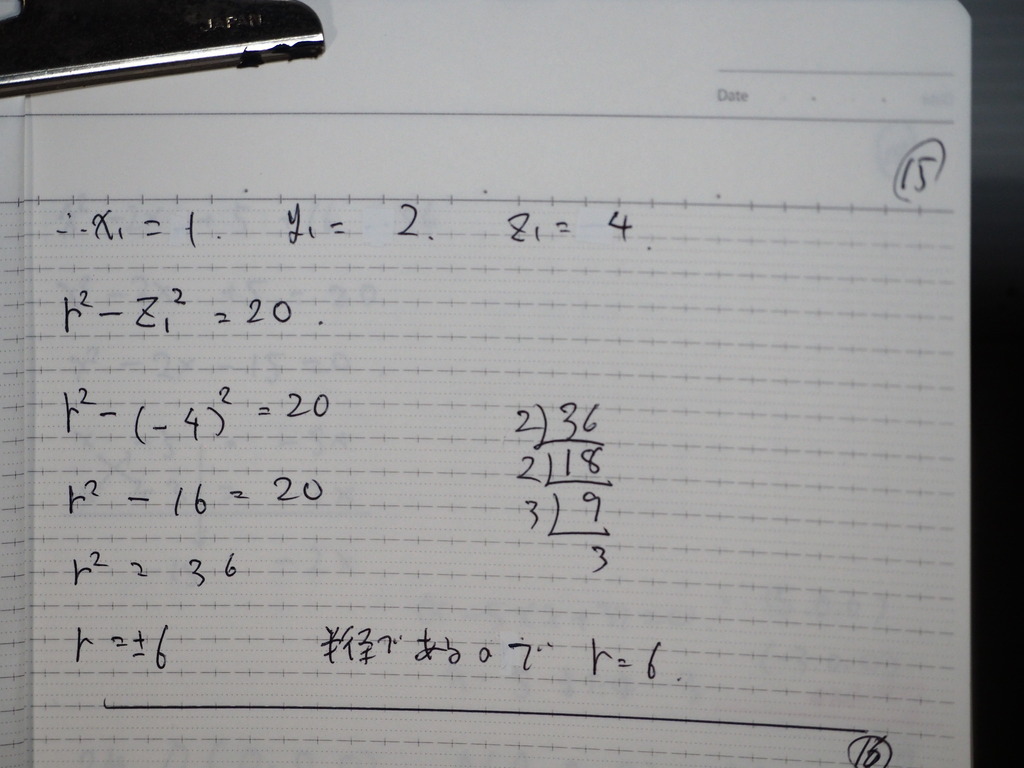 JAPAN
Date
⑮
∴x₁ = 1. y₁ = 2. z₁ = 4.
r² - z₁² = 20.
r² - (-4)² = 20
r² - 16 = 20
r² = 36
r = ±6 半径であるので r = 6.
2)36
2)18
3)9
3
⑯